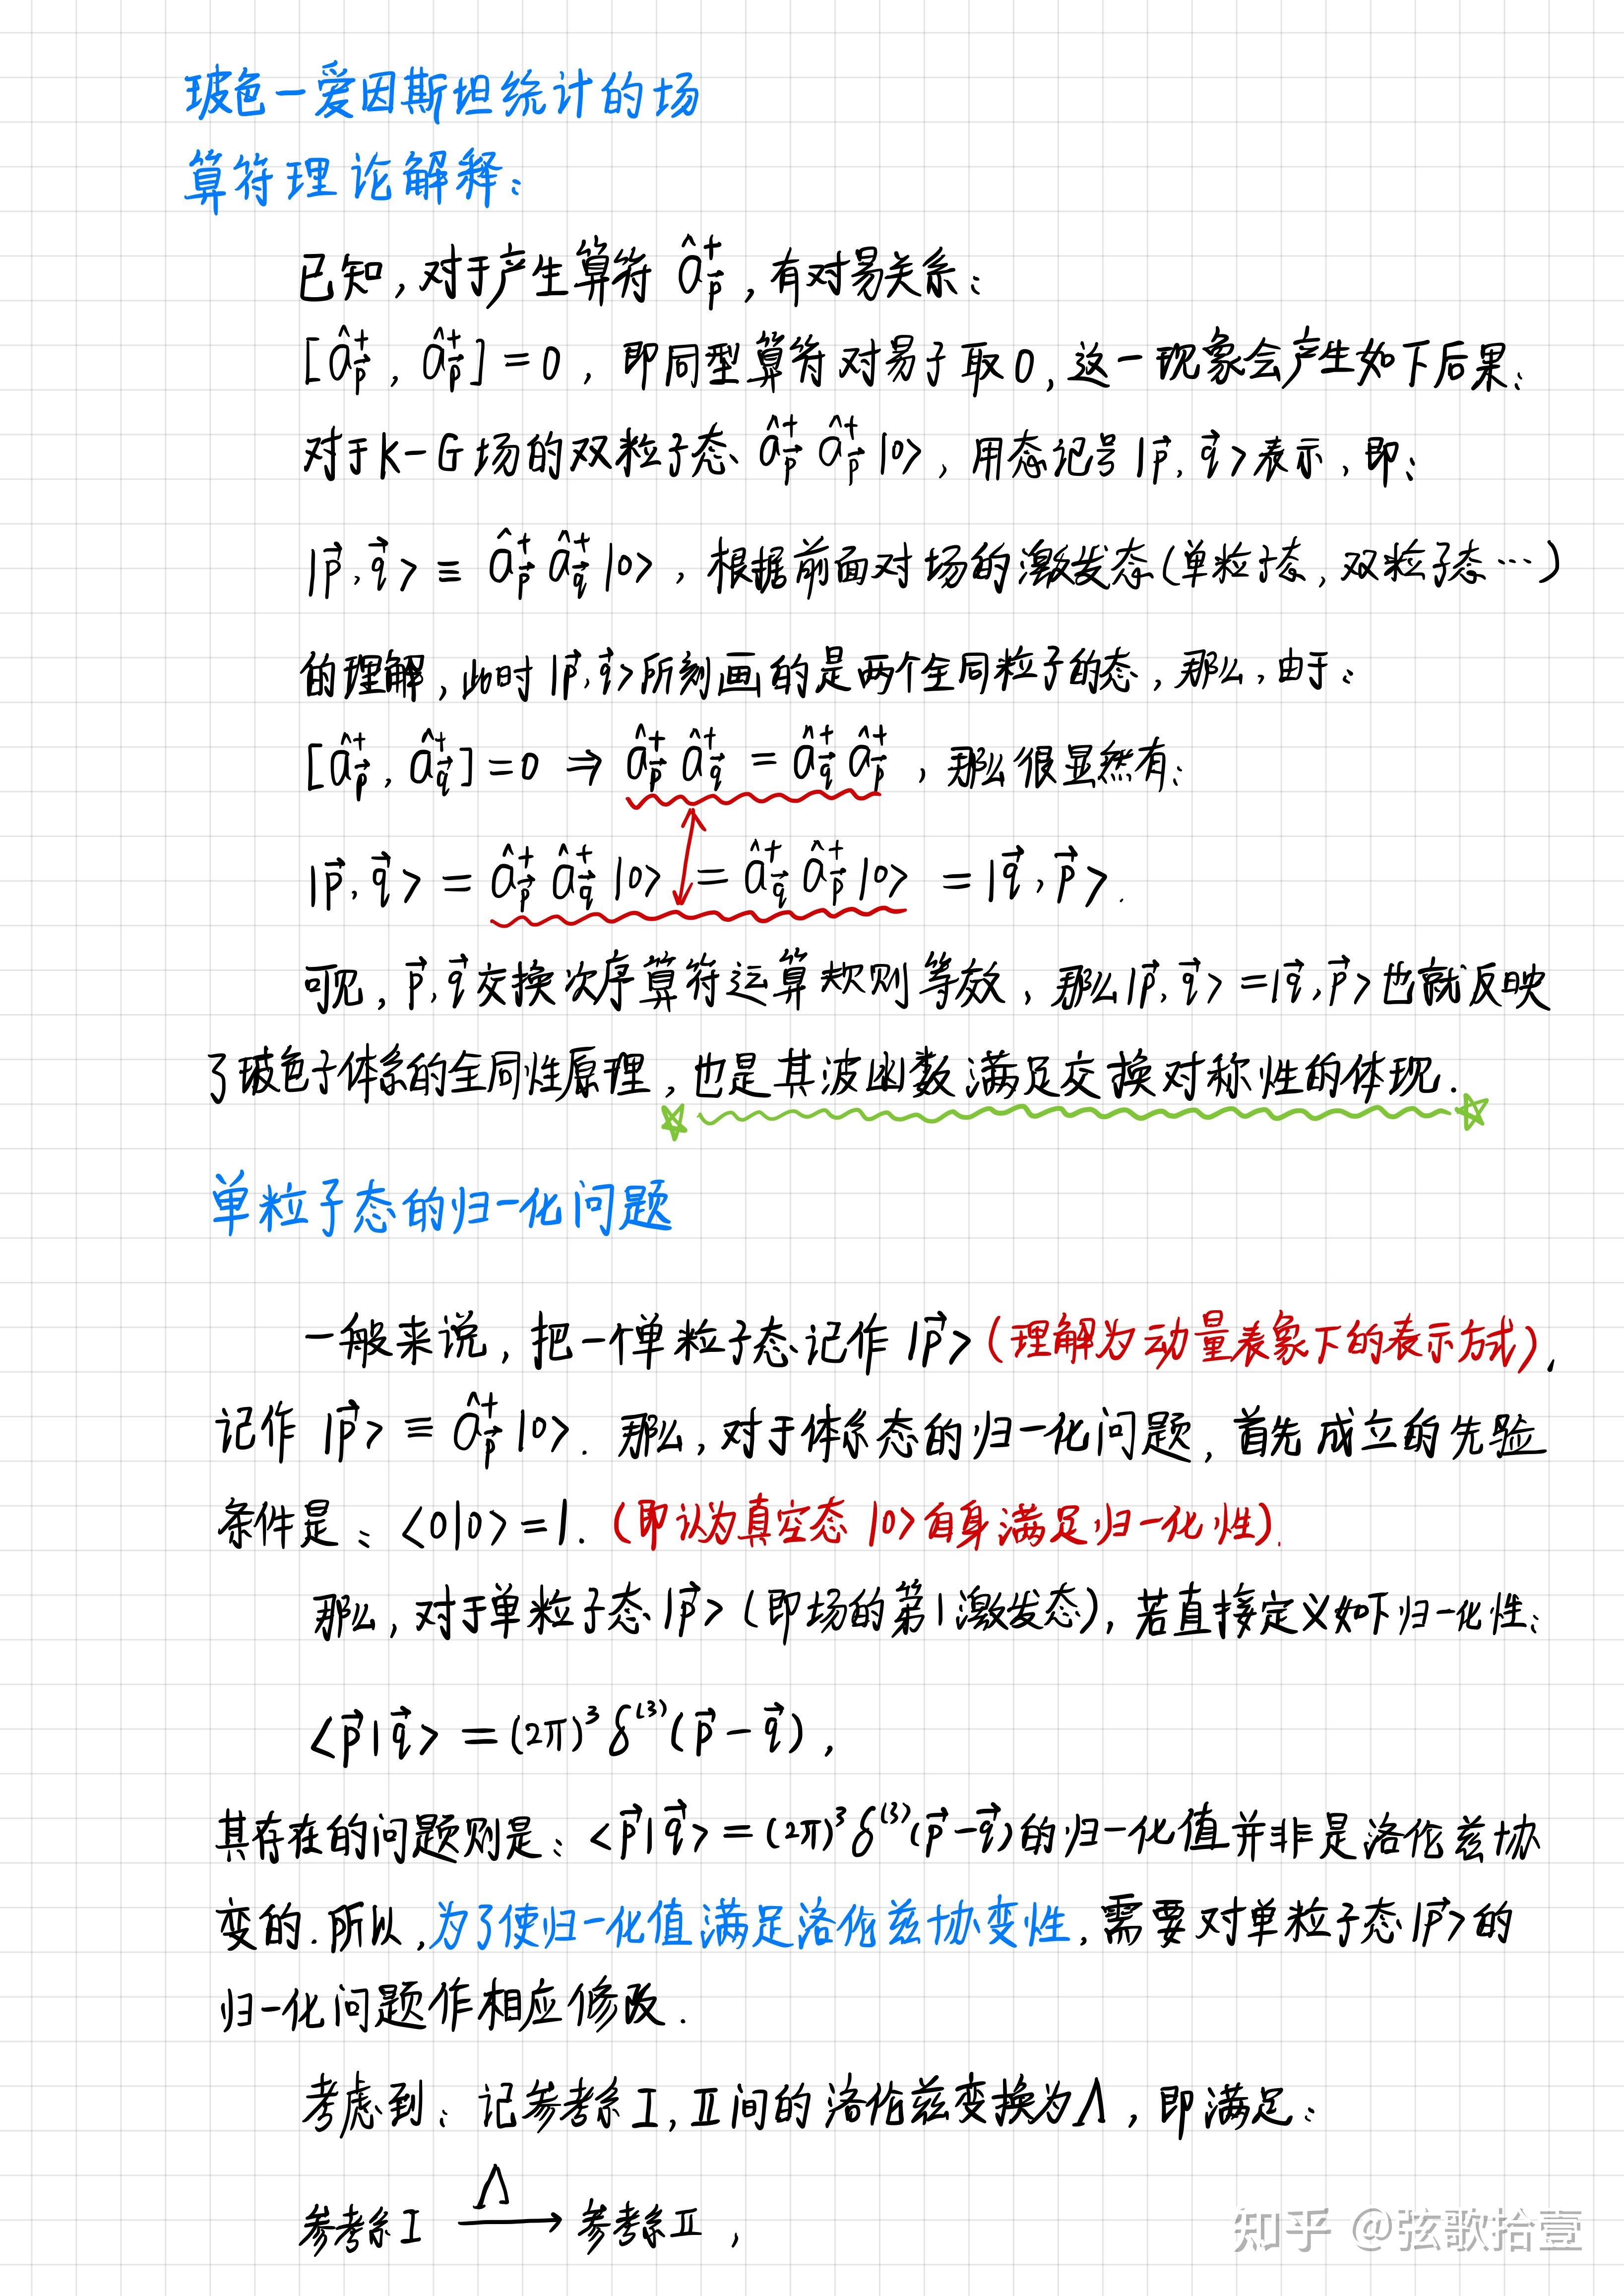 玻色-爱因斯坦统计的场
算符理论解释:
已知,对于产生算符 â†_p⃗ ,有对易关系:
[â†_p⃗ , â†_p⃗] = 0 , 即同型算符对易子取0,这一现象会产生如下后果:
对于K-G场的双粒子态 â†_p⃗ â†_p⃗ |0> , 用态记号 |p⃗, q⃗> 表示,即:
|p⃗, q⃗> ≡ â†_p⃗ â†_q⃗ |0> , 根据前面对场的激发态(单粒子态,双粒子态…)
的理解,此时 |p⃗, q⃗> 所刻画的是两个全同粒子的态,那么,由于:
[â†_p⃗ , â†_q⃗] = 0 ⇒ â†_p⃗ â†_q⃗ = â†_q⃗ â†_p⃗ , 那么很显然有:
|p⃗, q⃗> = â†_p⃗ â†_q⃗ |0> = â†_q⃗ â†_p⃗ |0> = |q⃗, p⃗> .
可见, p⃗, q⃗ 交换次序算符运算规则等效,那么 |p⃗, q⃗> = |q⃗, p⃗> 也就反映
了玻色子体系的全同性原理,也是其波函数满足交换对称性的体现.
单粒子态的归一化问题
一般来说,把一个单粒子态记作 |p⃗> (理解为动量表象下的表示方式),
记作 |p⃗> ≡ â†_p⃗ |0> . 那么,对于体系态的归一化问题,首先成立的先验
条件是: <0|0> = 1. (即认为真空态 |0> 自身满足归一化性).
那么,对于单粒子态 |p⃗> (即场的第1激发态),若直接定义如下归一化性:
<p⃗|q⃗> = (2π)³ δ⁽³⁾(p⃗ - q⃗) ,
其存在的问题则是: <p⃗|q⃗> = (2π)³ δ⁽³⁾(p⃗ - q⃗) 的归一化值并非是洛伦兹协
变的.所以,为了使归一化值满足洛伦兹协变性,需要对单粒子态 |p⃗> 的
归一化问题作相应修改.
考虑到:记参考系Ⅰ,Ⅱ间的洛伦兹变换为Λ,即满足:
参考系Ⅰ —Λ→ 参考系Ⅱ ,
知乎 @弦歌拾壹